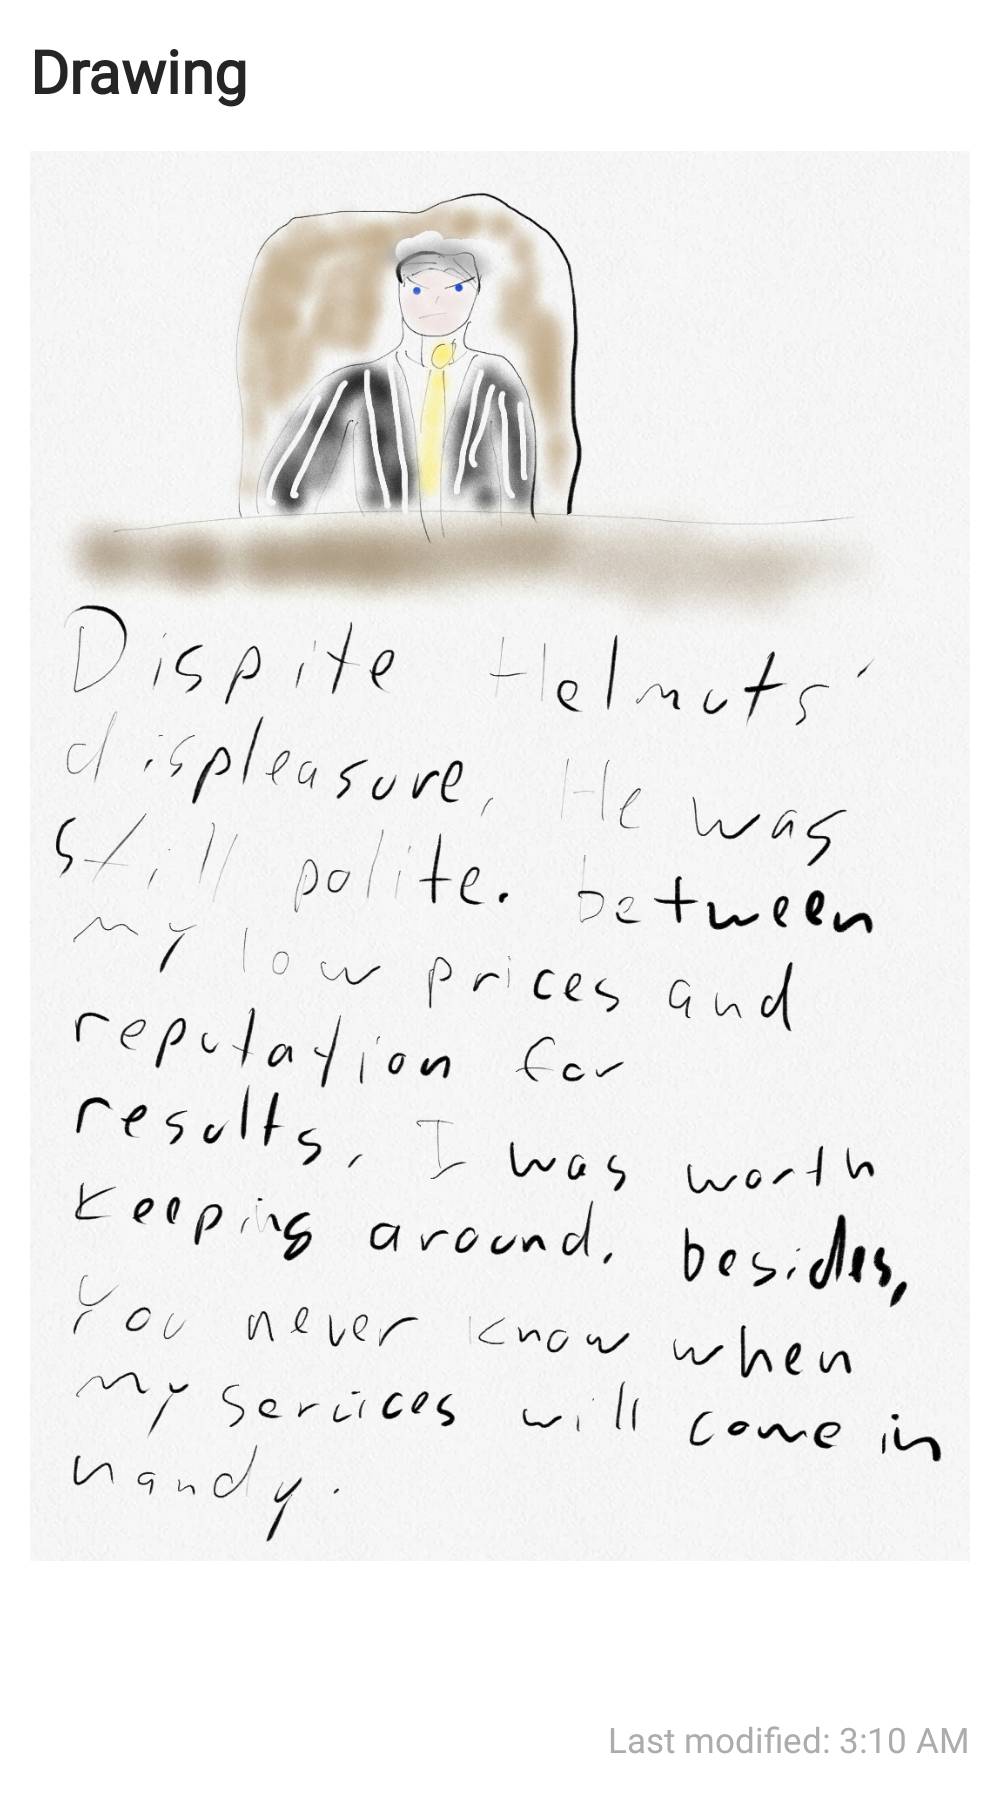 Drawing
Dispite Helmuts'
displeasure, He was
still polite. between
my low prices and
reputation for
results, I was worth
keeping around. besides,
You never know when
my services will come in
handy.
Last modified: 3:10 AM